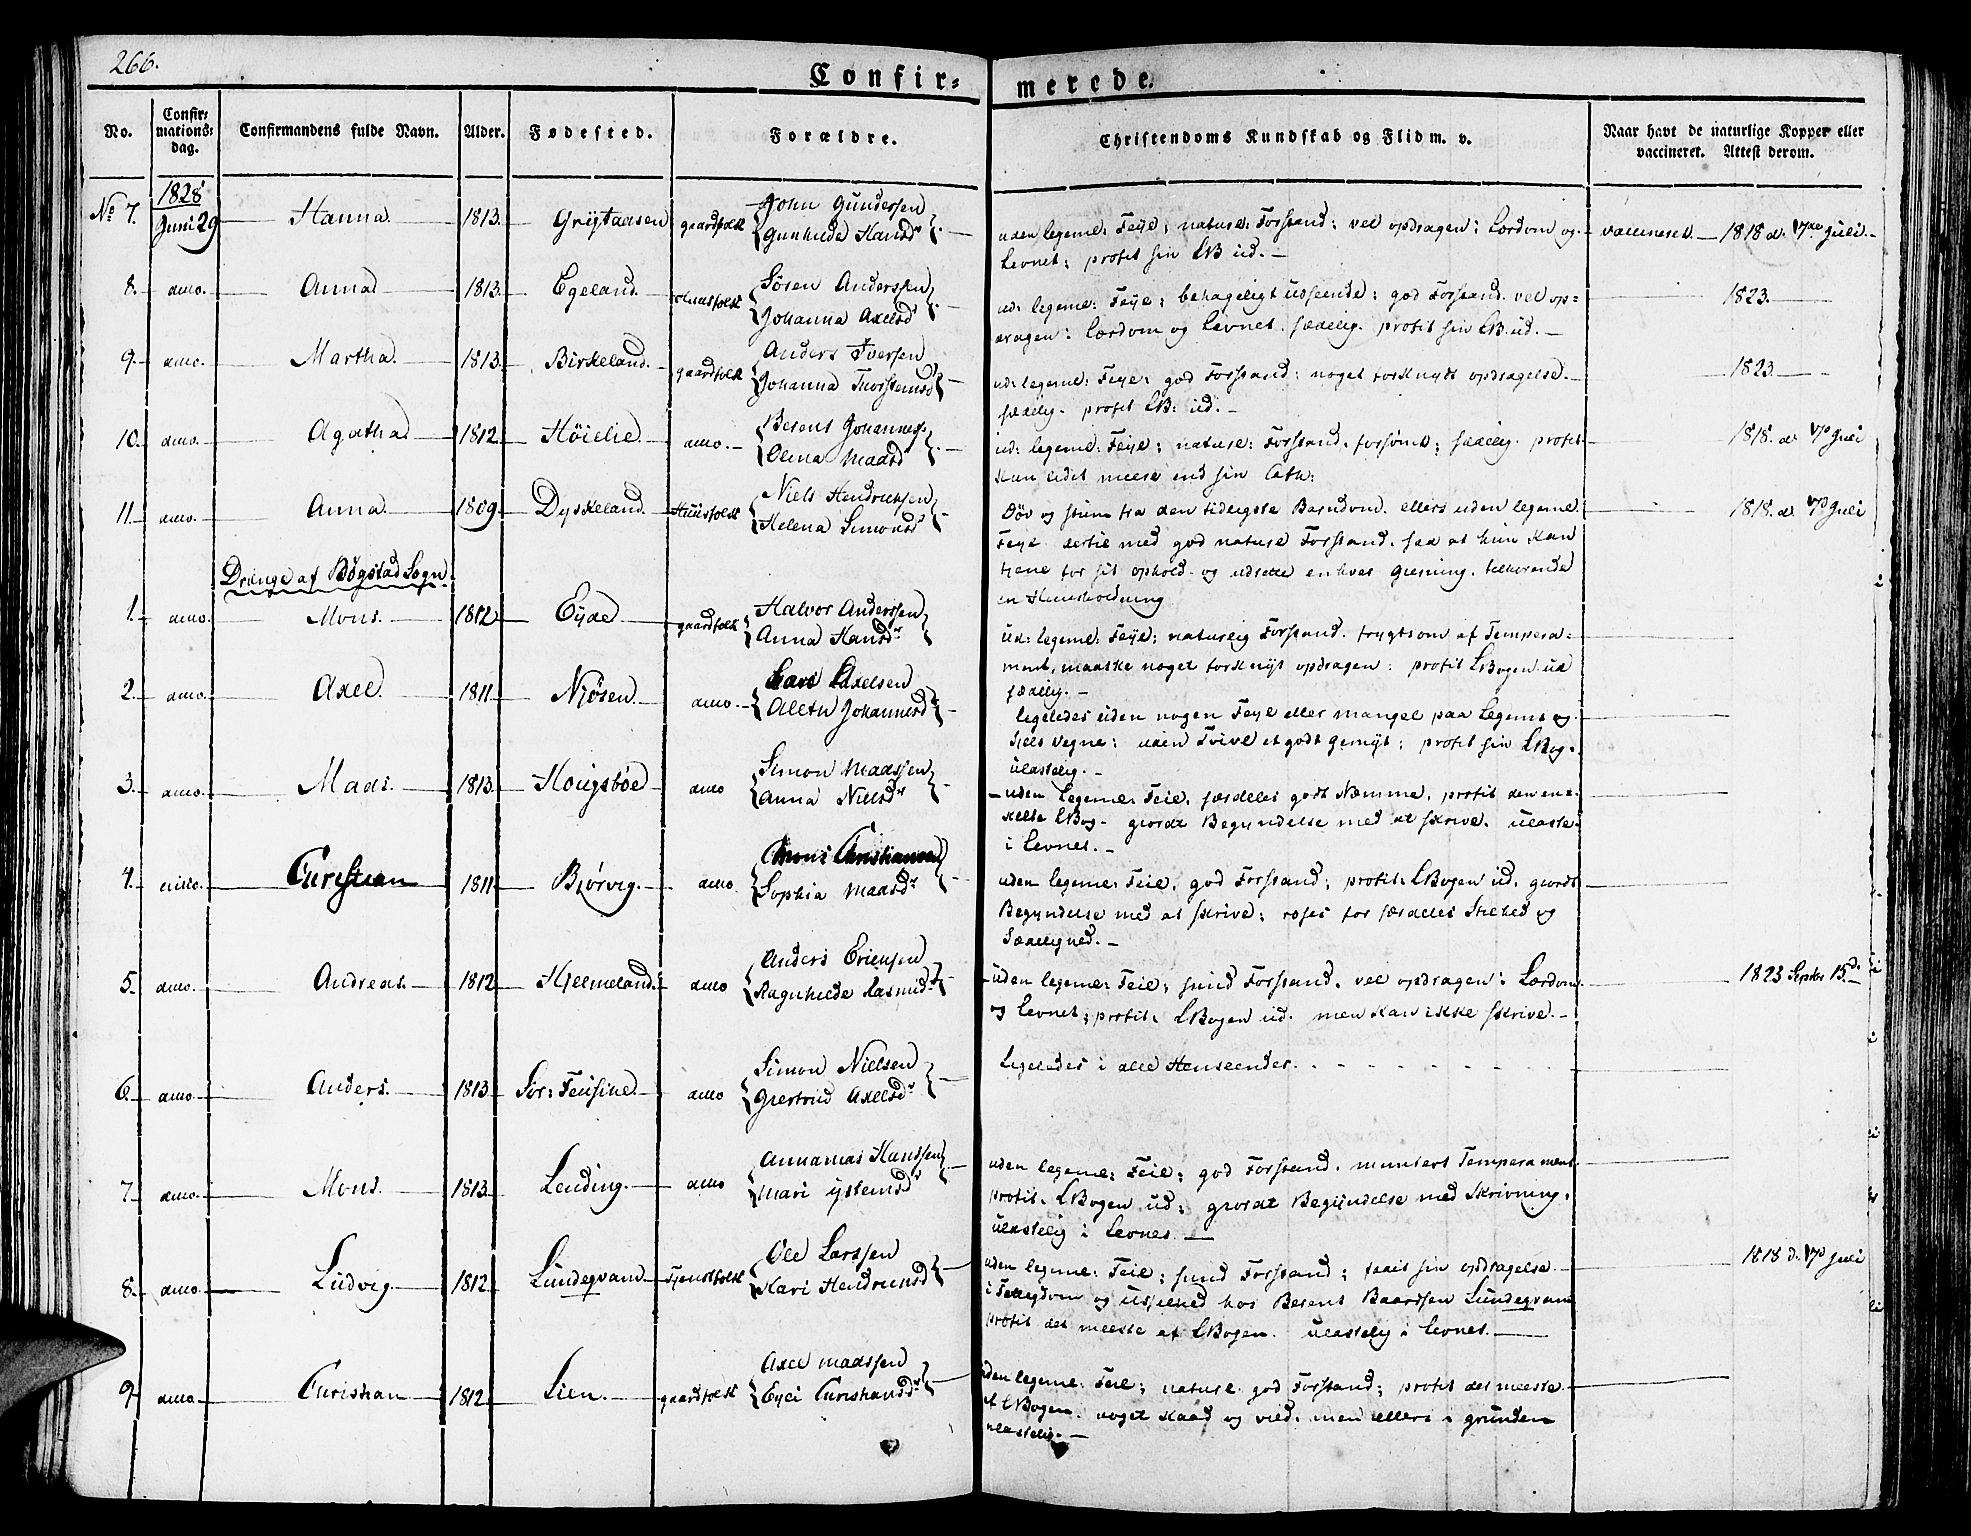 266.
Confir=
merede.
No.
Confir=
mations=
dag.
Confirmandens fulde Navn.
Alder.
Fødested.
Forældre.
Christendoms Kundskab og Flid m. v.
Naar havt de naturlige Kopper eller
vaccineret. Attest derom.
1828
No 7. Juni 29 Hanna. 1813. gaardfolk John Gundersen
Gunhilde Hansdr
uden legeml: Feyl; naturl: Forstand; vel opdragen; Lærdom og
Levnet; profit sin LB ud.
vaccineret 1818 d. 17de Juli.
8. dito. Anna 1813. Egeland. Huusfolk Søren Anderssen
Johanna Axelsd
ud: legeml: Feyl; behageligt Udseende; god Forstand. vel op=
dragen: Lærdom og Levnet. sædelig. profit sin LB. ud.
1823.
9. dito. Martha. 1813. Birkeland. gaardfolk Anders Iversen
Johanna Thorstensd
ud: legeml: Feyl; god Forstand; noget forknydt opdragelse.
sædelig. profit LB: ud.
1823.
10. dito. Agatha 1812. Høielie. dito. Berent Johannes.
Olina Maasd
ud: legeml: Feyl; naturl: Forstand. forsømt; sædelig. profit
kun lidet meere end sin Cath:
1818. d. 17d Juli
11. dito. Anna 1809. Dyskeland. Huusfolk Niels Hendrichsen
Helena Simonsd
Døv og stum fra den tidligste Barndom. ellers uden legeml.
Feyl. dertil med god naturl Forstand. saa at hun kan
tjene for sit ophold og udrette enhver Gierning. tilhørende
en Huusholdning
1818. d. 17d Juli
Drenge af Bøgstad Sogn.
1. dito. Mons. 1812. Eyde. gaardfolk Halvor Anderssen
Anna Hansdr
ud: legeml: Feyl; naturlig Forstand. frygtsom af Tempera=
ment, maaske noget forknyt opdragen; profit LBogen ud
sædelig.
2. dito. Axel. 1811. Njøsen. dito. Lars Axelsen
Johannesd
ligeledes uden nogen Feyl eller mangel paa Legems og
Siels Vegne; uden Tvivl et godt Gemyt; profit sin LBog.
ulastelig.
3. dito. Mads. 1813. Hougsbøe dito Simon Maassen
Anna Nielsdr
uden legeml: Feil, særdeles godt Nemme, profit den en=
kelte LBog. giordt Begyndelse med at skrive. ulaste.
i Levnet.
4. dito. Christian 1811. Bjørvig. dito. Mons Christiansen
Sophia Maasdr
uden legeml: Feil, god Forstand; profit. LBogen ud. giordt
Begyndelse med at skrive; roses for særdeles Stilhed og
Sædelighed.
5. dito. Andreas. 1812 Hjelmeland. dito Anders Erichsen
Ragnhilde Rasmusd
uden legeml: Feil; sund Forstand. vel opdragen: Lærdom.
og Levnet; profit. LBogen ud. men kan ikke skrive.
1823 Septbr 15d.
6. dito. Anders. 1813 dito Simon Nielsen
Giertrud Axelsdr
Ligeledes i alle Henseender.
7. dito. Mons. 1813. Lending. dito Hanssen
Mari
uden legeml: Feil; god Forstand. muntert Temperament
profit. LBogen ud; giordt Begyndelse med Skrivning;
ulastelig i Levnet.
8. dito. Ludvig. 1812. Lundeqvam. Tjenstfolk Ole Larssen
Kari Hendricksd
uden legeml: Feil; sund Forstand; faait sin opdragelse
i Fattigdom og Uselhed hos Berent Baardsen Lundeqvam
profit det meeste af LBogen. ulastelig i Levnet.
1818 d. 17d Juli
9. dito. Christian 1812. Lien. gaardfolk Axel Maassen
Christiansdr
uden legeml: Feil; naturl. god Forstand; profit det meeste
af LBogen. noget kaad og vild. men ellers i grunden
ulastelig.